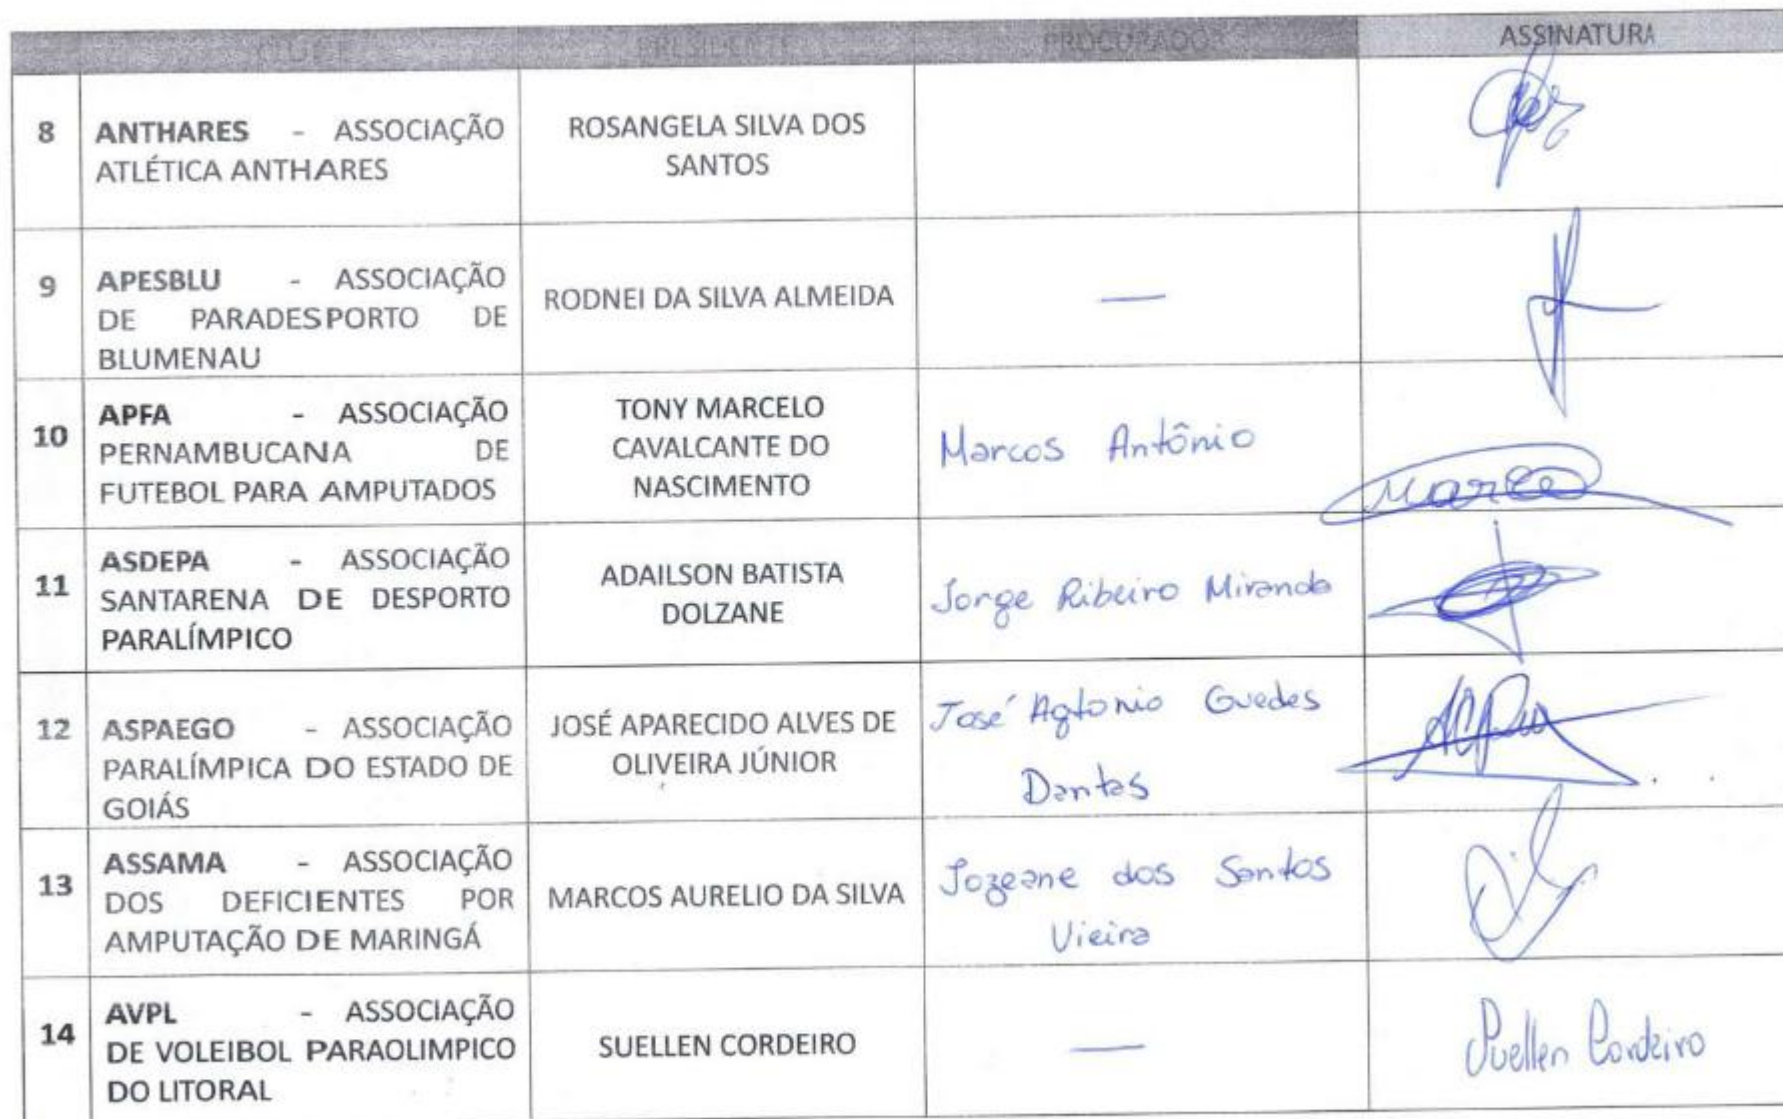 CLUBE PRESIDENTE PROCURADOR ASSINATURA
8 ANTHARES - ASSOCIAÇÃO
ATLÉTICA ANTHARES
ROSANGELA SILVA DOS
SANTOS
9 APESBLU - ASSOCIAÇÃO
DE PARADESPORTO DE
BLUMENAU
RODNEI DA SILVA ALMEIDA
—
10 APFA - ASSOCIAÇÃO
PERNAMBUCANA DE
FUTEBOL PARA AMPUTADOS
TONY MARCELO
CAVALCANTE DO
NASCIMENTO
Marcos Antônio
11 ASDEPA - ASSOCIAÇÃO
SANTARENA DE DESPORTO
PARALÍMPICO
ADAILSON BATISTA
DOLZANE
Jorge Ribeiro Miranda
12 ASPAEGO - ASSOCIAÇÃO
PARALÍMPICA DO ESTADO DE
GOIÁS
JOSÉ APARECIDO ALVES DE
OLIVEIRA JÚNIOR
José Agtonio Guedes
Dantas
13 ASSAMA - ASSOCIAÇÃO
DOS DEFICIENTES POR
AMPUTAÇÃO DE MARINGÁ
MARCOS AURELIO DA SILVA
Jozeane dos Santos
Vieira
14 AVPL - ASSOCIAÇÃO
DE VOLEIBOL PARAOLIMPICO
DO LITORAL
SUELLEN CORDEIRO
—
Suellen Cordeiro